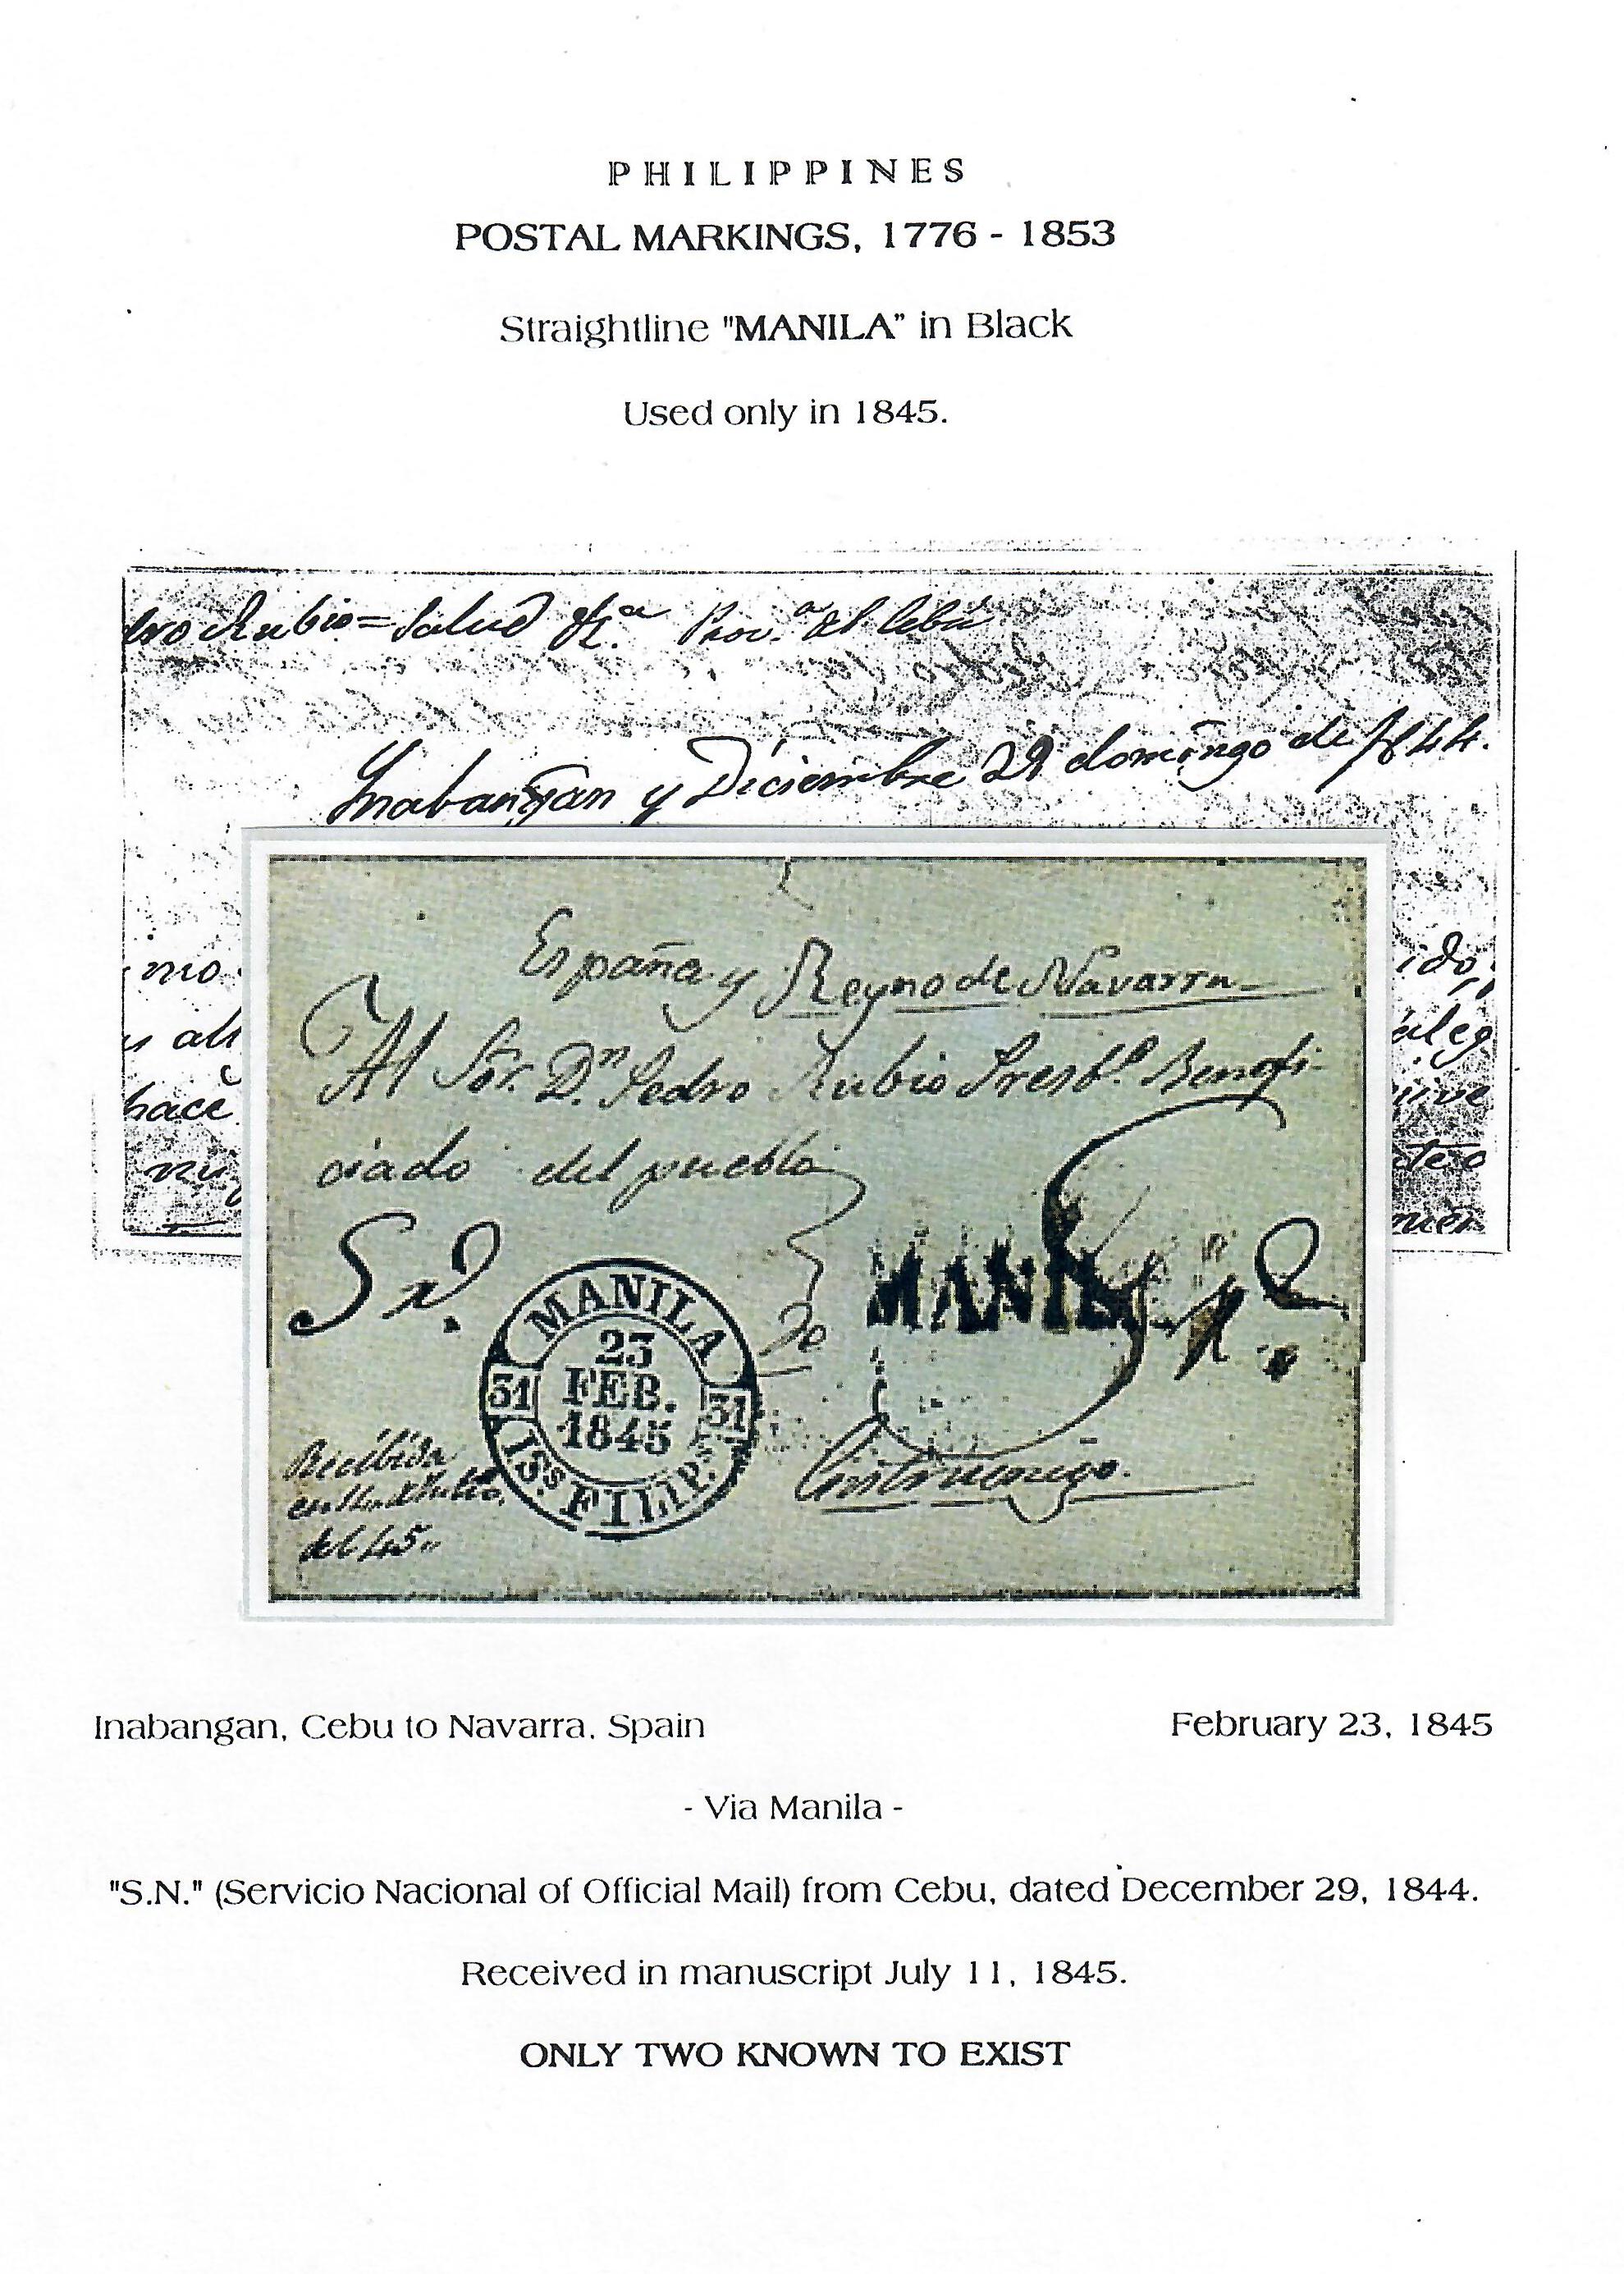 PHILIPPINES
POSTAL MARKINGS, 1776 - 1853
Straightline "MANILA" in Black
Used only in 1845.
Rubio = Salud &.a Prov.a de Cebú
Inabangan y Diciembre 29 domingo de 1844.
mo
ido,
hace
España y Reyno de Navarra
Al Sor. Dn. Pedro Rubio Presbo. Benefi-
ciado del pueblo
de
MANILA
MANILA
23
FEB.
1845
31 31
IS.s FILIP.s
Recibida
del 45.
Inabangan, Cebu to Navarra, Spain
February 23, 1845
- Via Manila -
"S.N." (Servicio Nacional of Official Mail) from Cebu, dated December 29, 1844.
Received in manuscript July 11, 1845.
ONLY TWO KNOWN TO EXIST